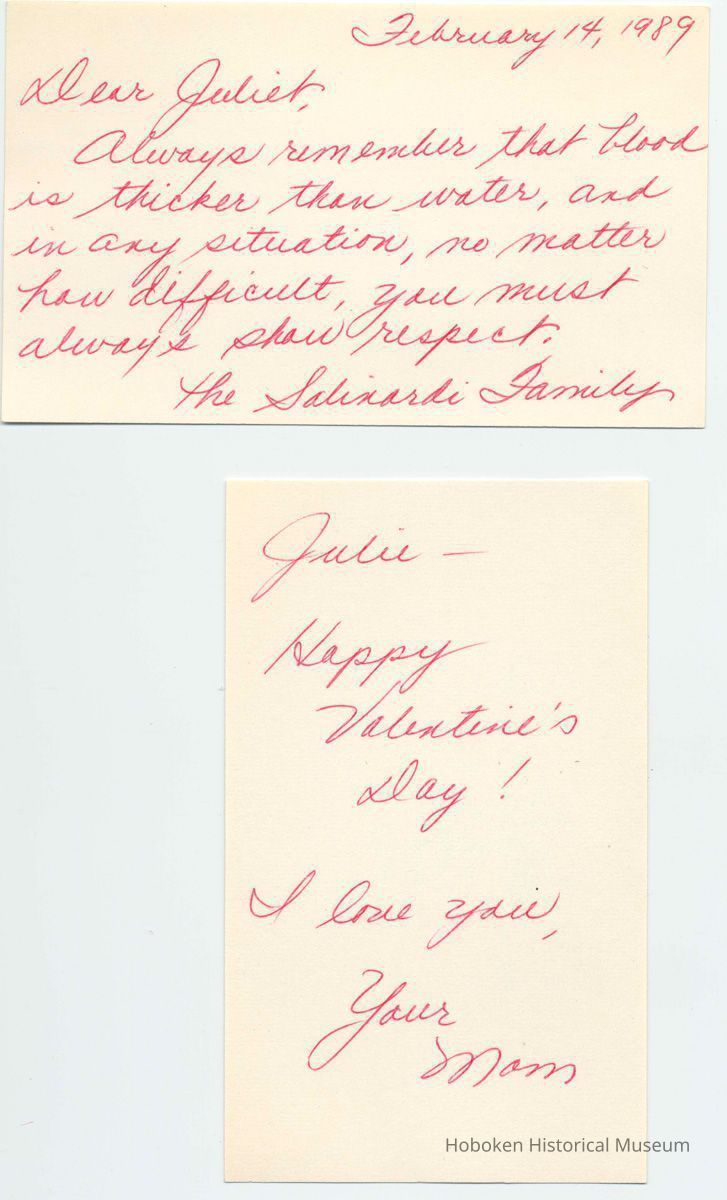 February 14, 1989
Dear Juliet,
Always remember that blood
is thicker than water, and
in any situation, no matter
how difficult, you must
always show respect.
The Salinardi Family
Julie —
Happy
Valentine's
Day!
I love you,
Your
Mom
Hoboken Historical Museum